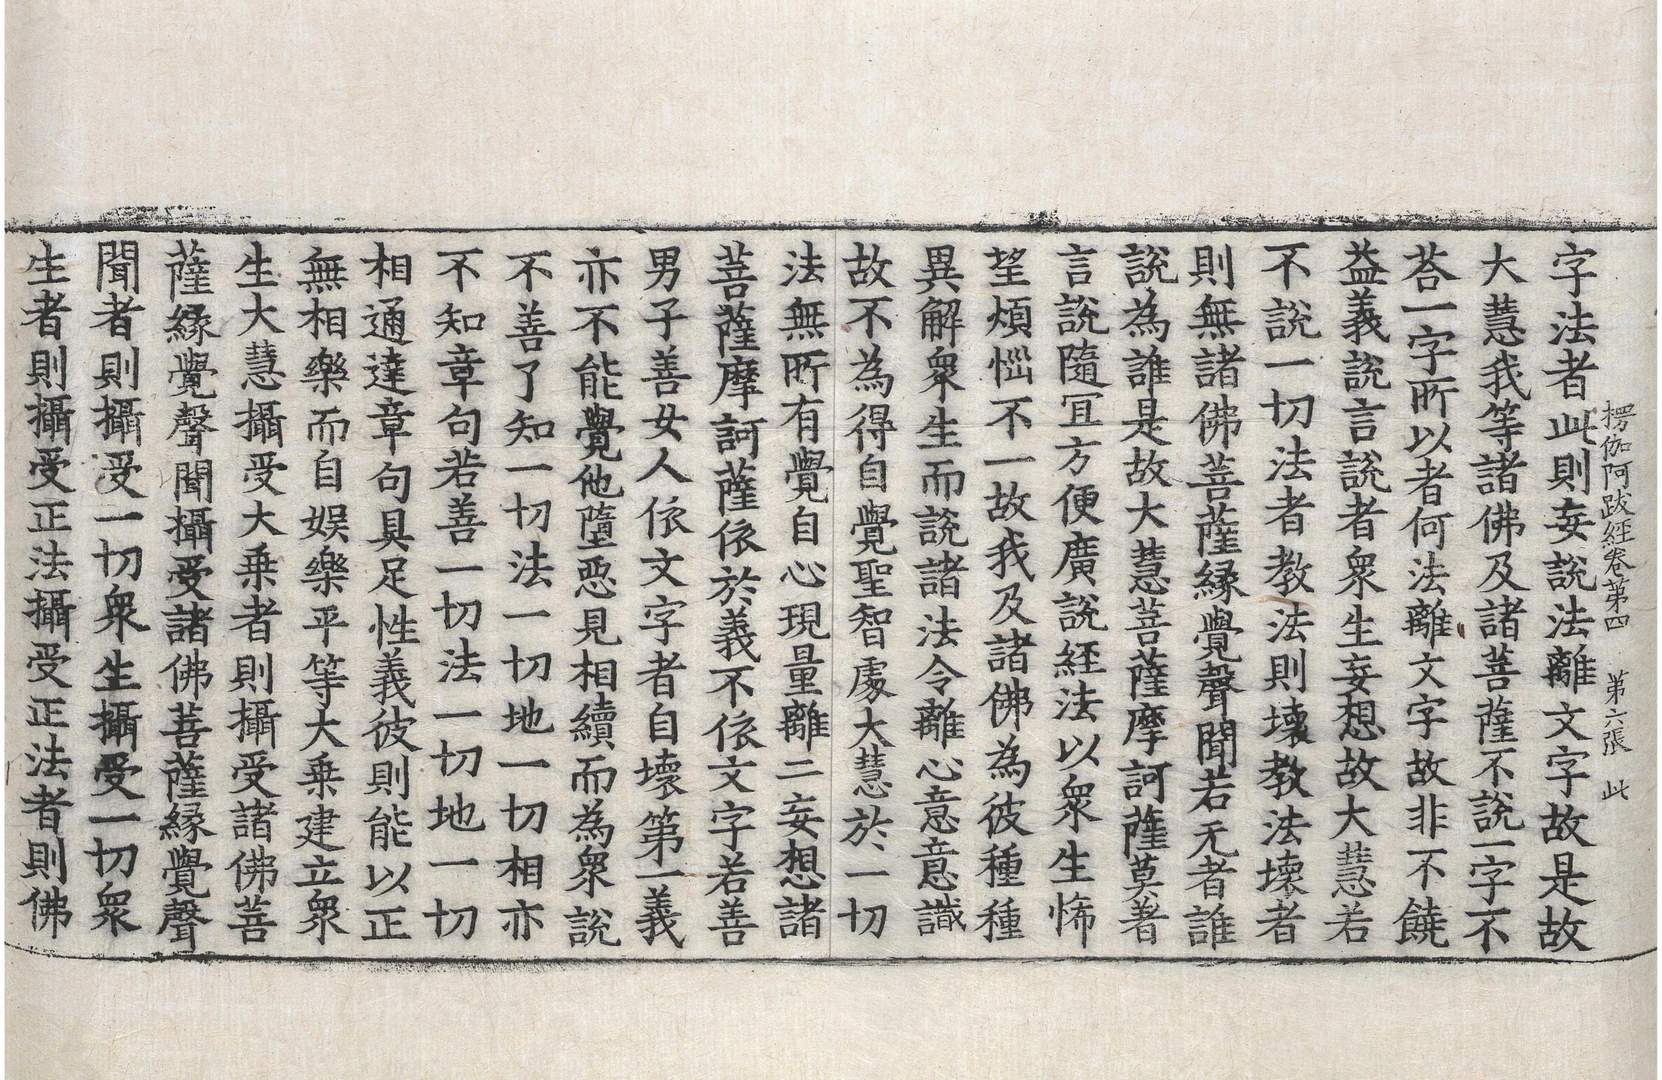 楞伽阿跋經卷第四　第六張　此
字法者此則妄說法離文字故是故
大慧我等諸佛及諸菩薩不說一字不
荅一字所以者何法離文字故非不饒
益義說言說者衆生妄想故大慧若
不說一切法者教法則壞教法壞者
則無諸佛菩薩緣覺聲聞若无者誰
說為誰是故大慧菩薩摩訶薩莫著
言說隨冝方便廣說經法以衆生悕
望煩惱不一故我及諸佛為彼種種
異解衆生而說諸法令離心意意識
故不為得自覺聖智處大慧於一切
法無所有覺自心現量離二妄想諸
菩薩摩訶薩依於義不依文字若善
男子善女人依文字者自壞第一義
亦不能覺他墮惡見相續而為衆說
不善了知一切法一切地一切相亦
不知章句若善一切法一切地一切
相通達章句具足性義彼則能以正
無相樂而自娛樂平等大乗建立衆
生大慧攝受大乗者則攝受諸佛菩
薩緣覺聲聞攝受諸佛菩薩緣覺聲
聞者則攝受一切衆生攝受一切衆
生者則攝受正法攝受正法者則佛